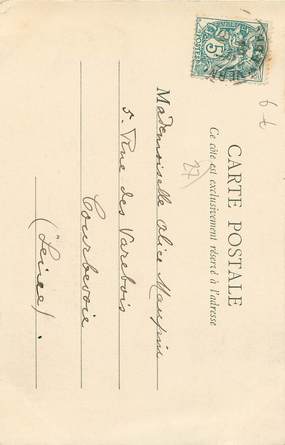 CARTE POSTALE
Ce côté est exclusivement réservé à l'adresse
Mademoiselle Alice Maupin
5. Rue des Varebois
Courbevoie
(Seine).
5
POSTES
27)
6 t